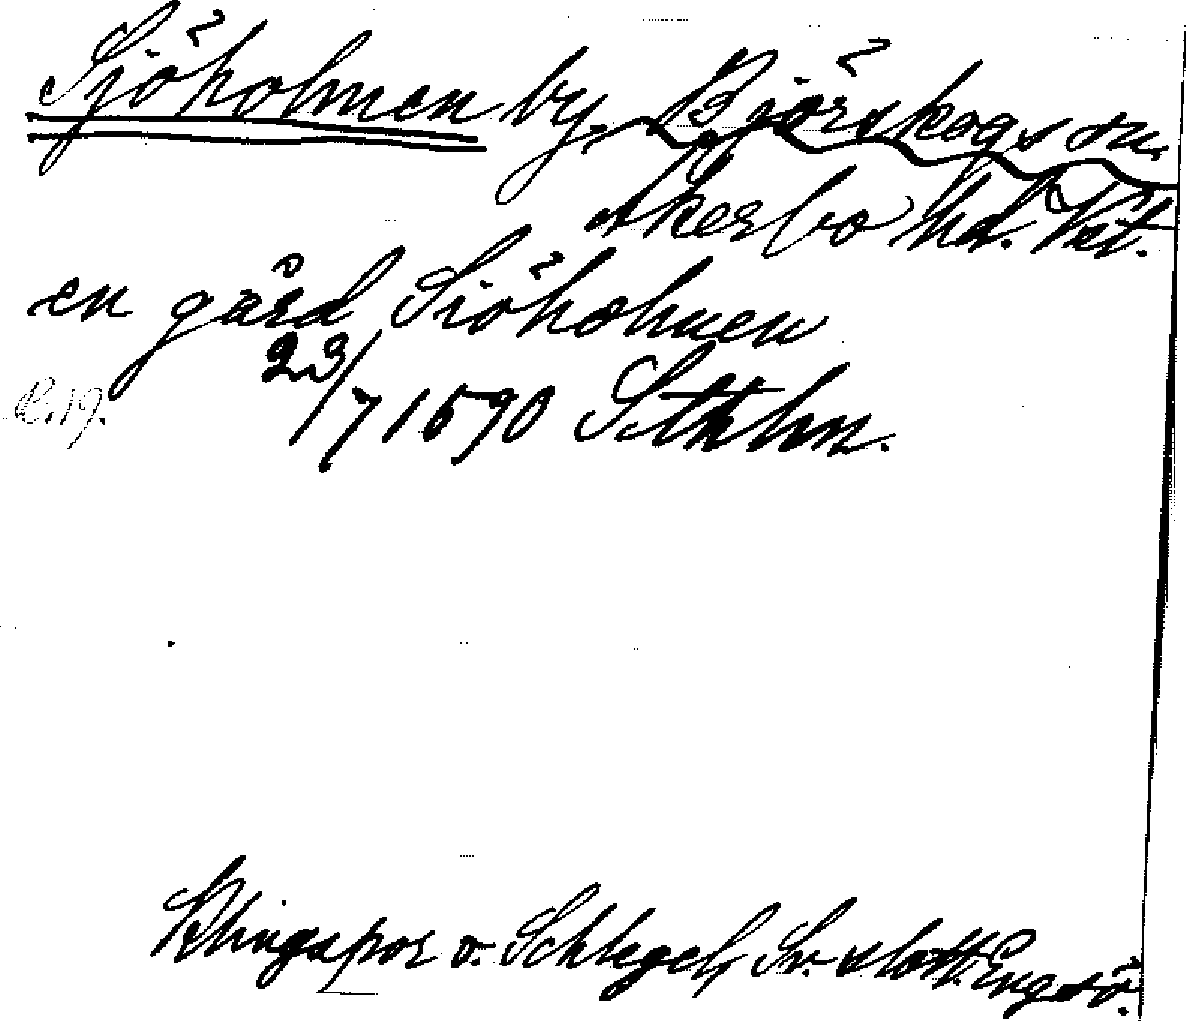 Sjöholmen by, Björskogs sn.
Åkerbo hd. Vstm.
en gård Siöholmen
23/7 1590 Sthlm.
Klingspor o. Schlegel, Sv. slott. Engsö.